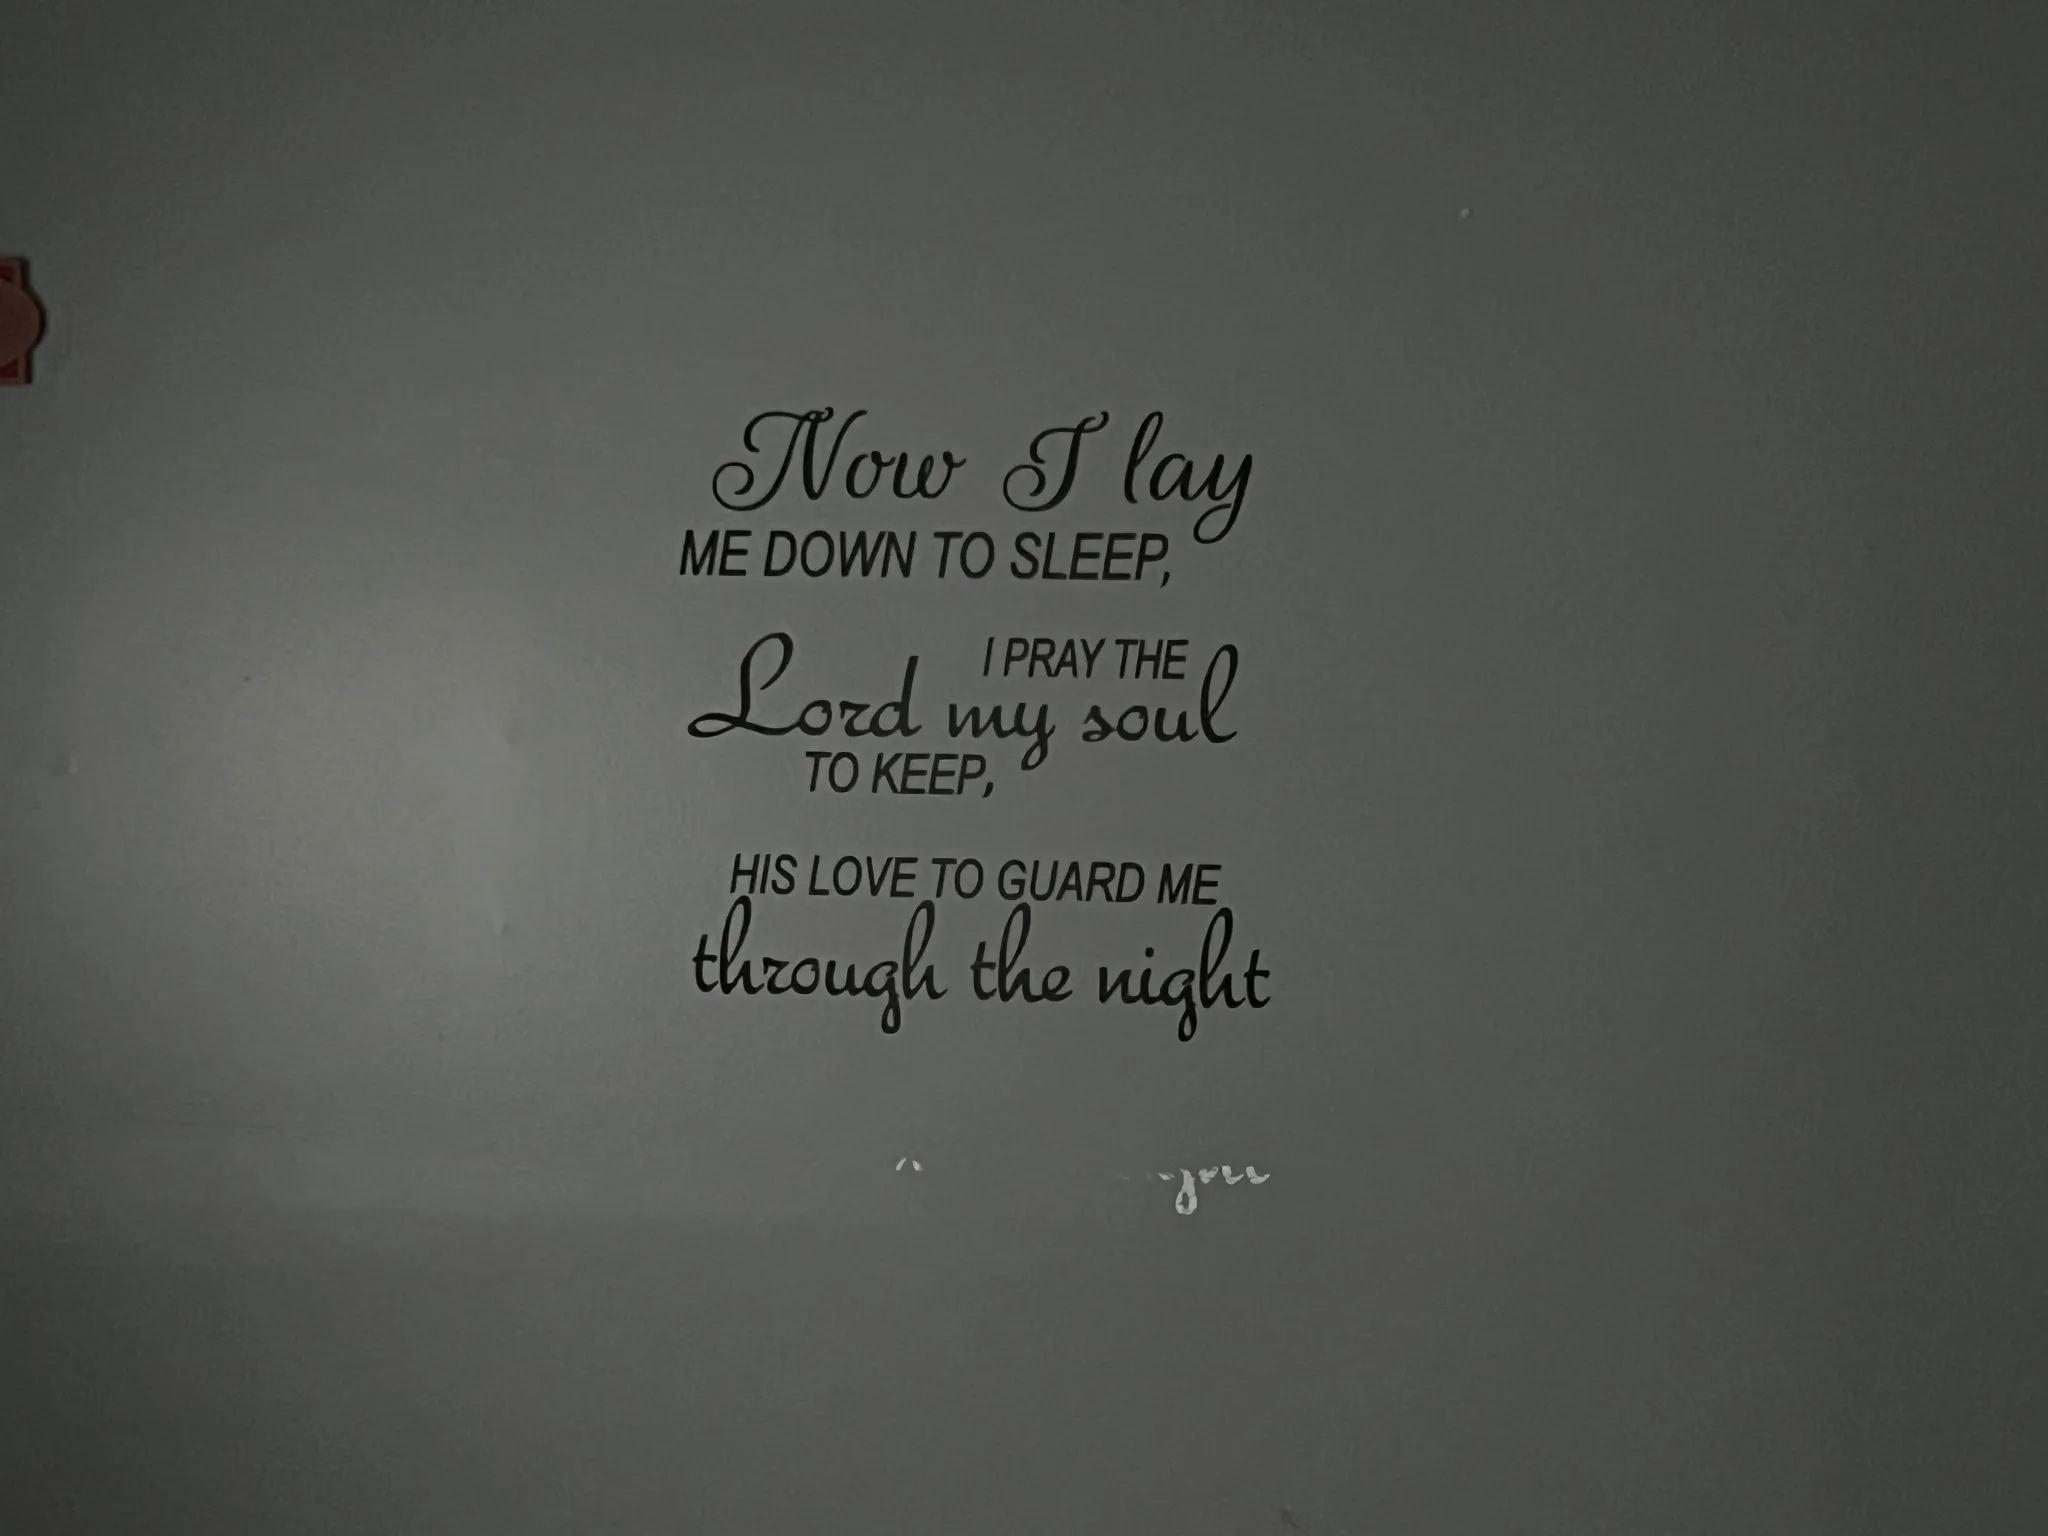 Now I lay
ME DOWN TO SLEEP,
I PRAY THE
Lord my soul
TO KEEP,
HIS LOVE TO GUARD ME
through the night